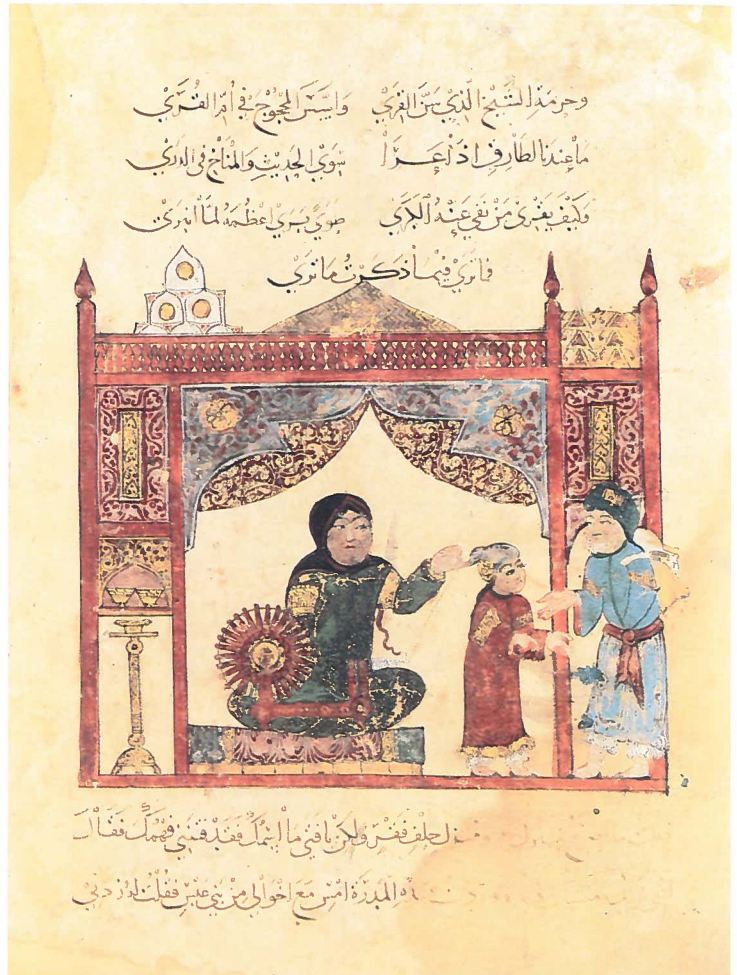 وحرمة الشيخ الذي سن القرى واسس المحجوج في أم القرى
ما عندنا لطارق إذا عرا سوى الحديث والمناخ في الذرى
وكيف يقري من نفى عنه الكرى طوى برى أعظمه لما انبرى
فما ترى فيما ذكرت ما ترى
حلف فقر ولكن يا فتى ما اسمك فقد فتنني فهمك فقال
المدرة امس مع اخوالي من بني عبس فقلت له زدني